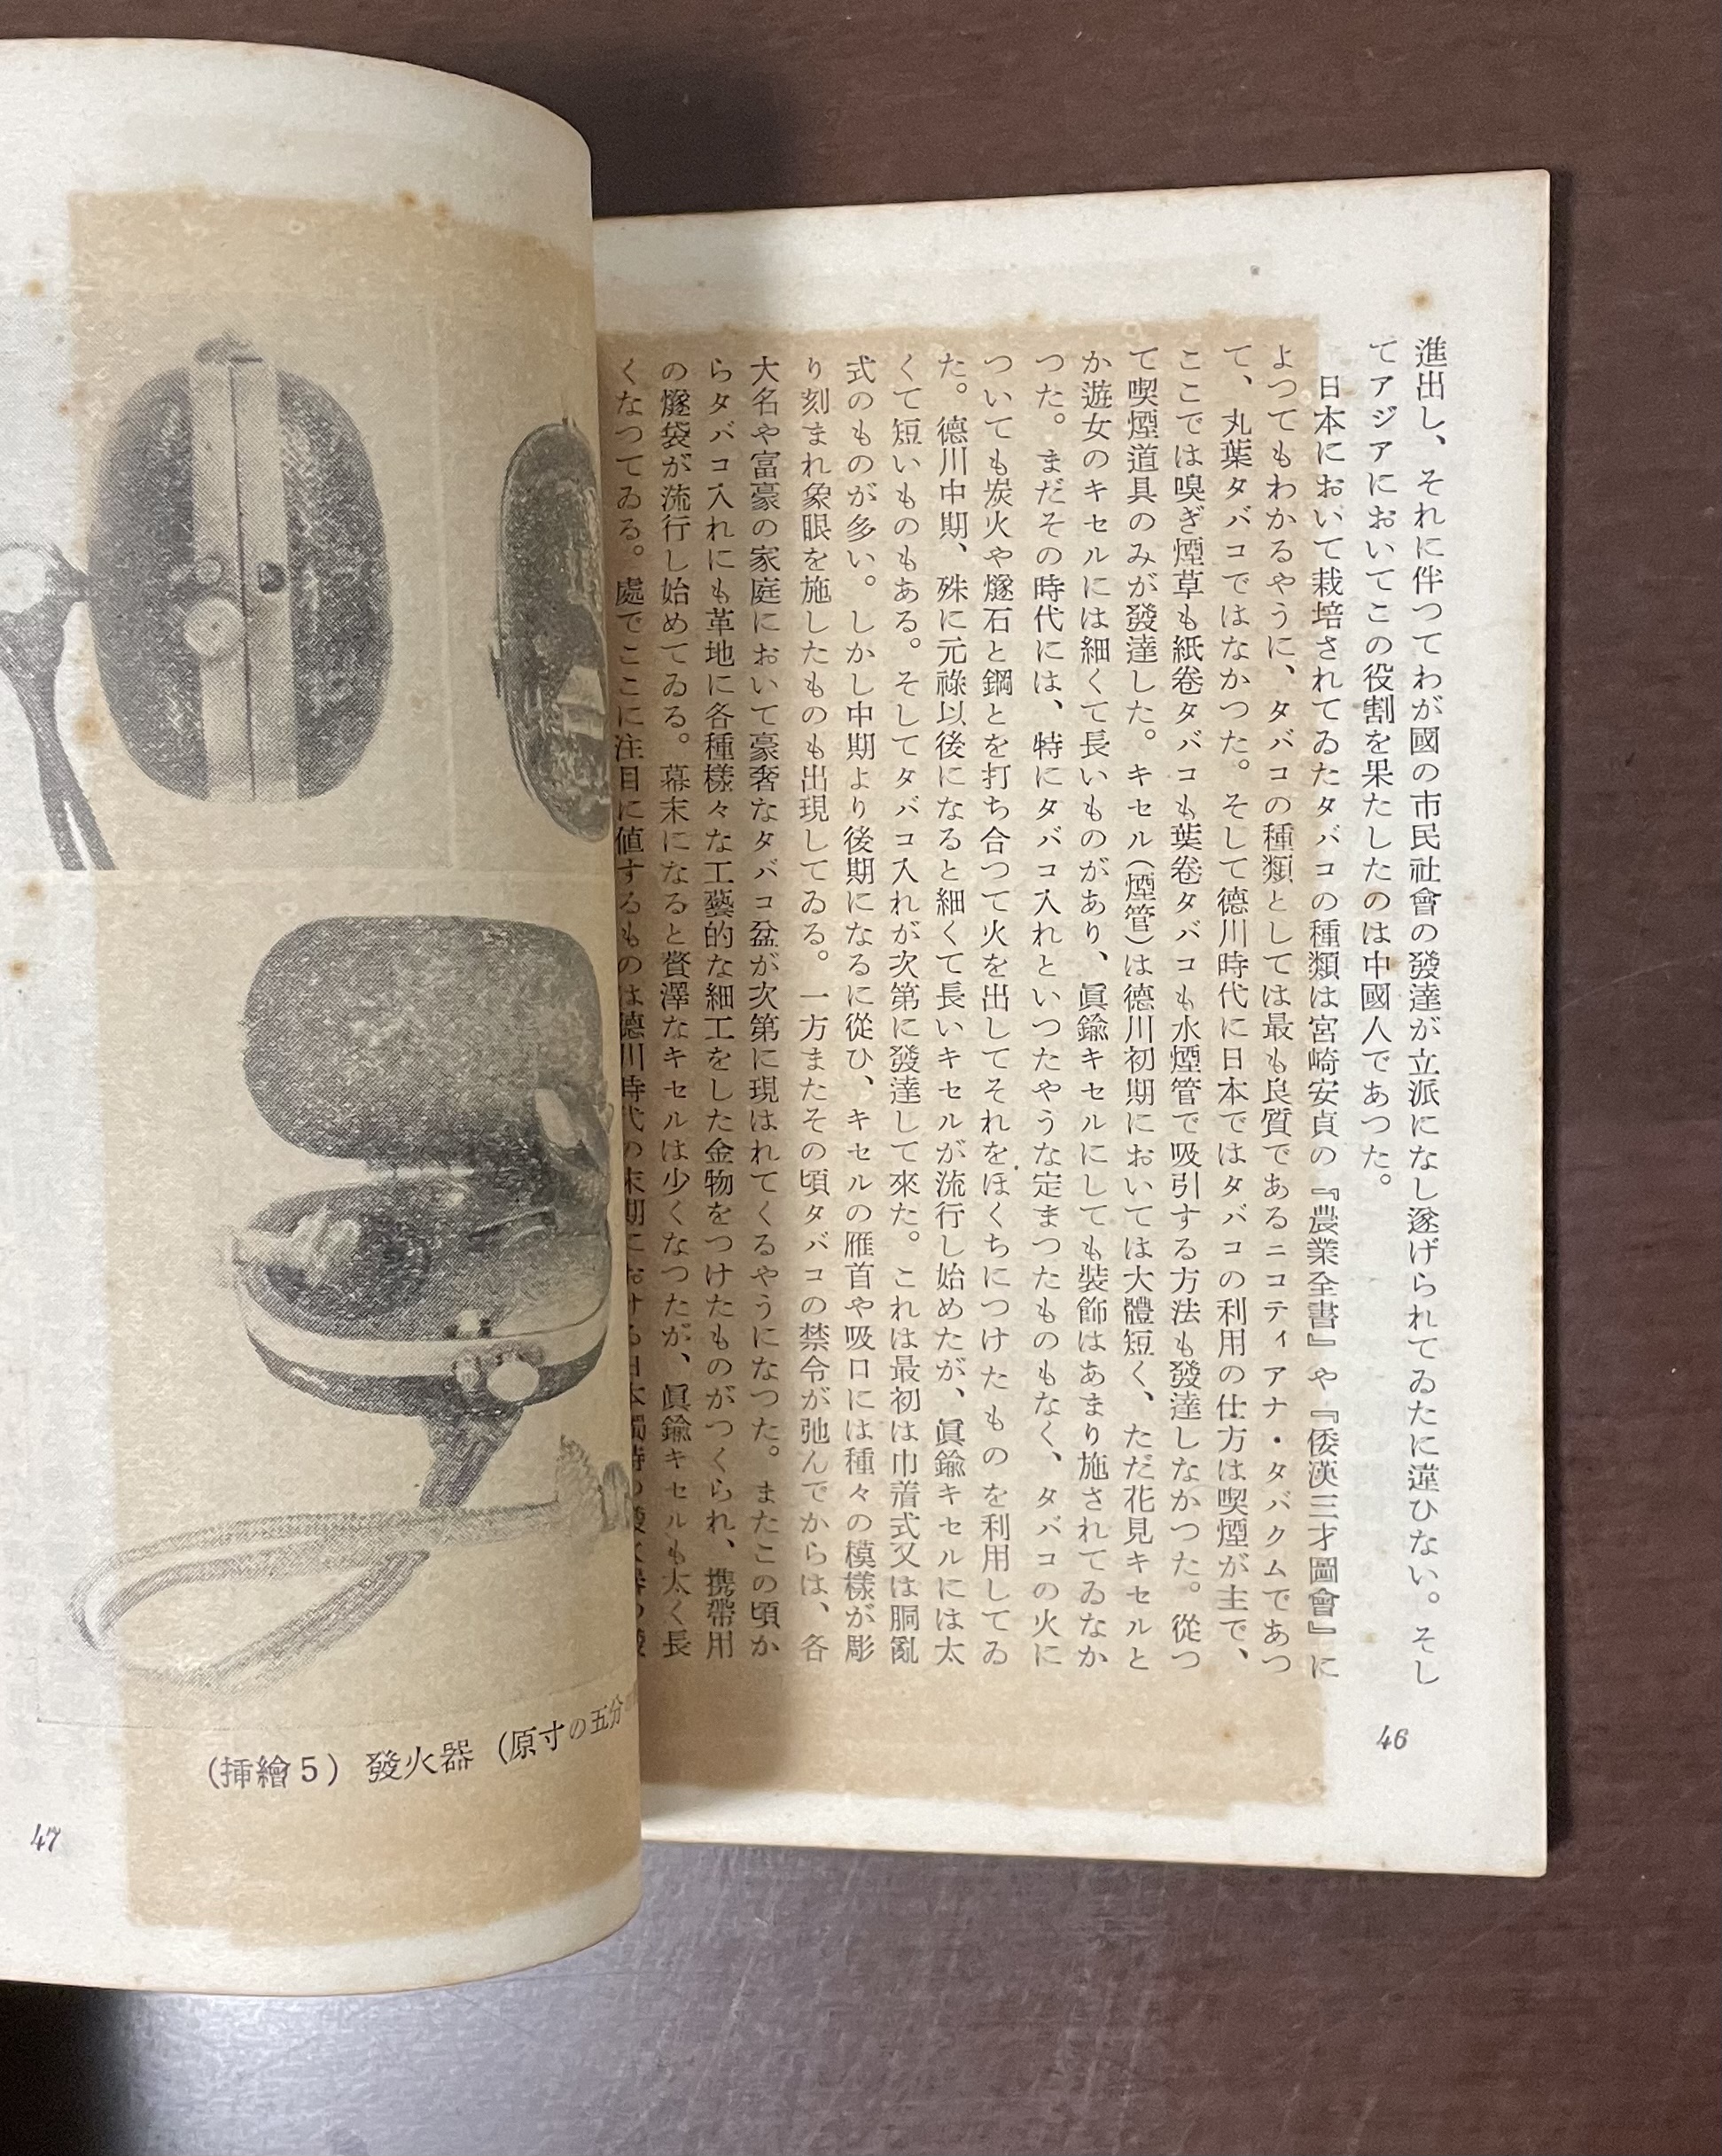 進出し、それに伴つてわが國の市民社會の發達が立派になし遂げられてゐたに違ひない。そし
てアジアにおいてこの役割を果たしたのは中國人であつた。
日本において栽培されてゐたタバコの種類は宮崎安貞の『農業全書』や『倭漢三才圖會』に
よつてもわかるやうに、タバコの種類としては最も良質であるニコティアナ・タバクムであつ
て、丸葉タバコではなかつた。そして德川時代に日本ではタバコの利用の仕方は喫煙が主で、
ここでは嗅ぎ煙草も紙卷タバコも葉卷タバコも水煙管で吸引する方法も發達しなかつた。從つ
て喫煙道具のみが發達した。キセル(煙管)は德川初期においては大體短く、ただ花見キセルと
か遊女のキセルには細くて長いものがあり、眞鍮キセルにしても裝飾はあまり施されてゐなか
つた。まだその時代には、特にタバコ入れといつたやうな定まつたものもなく、タバコの火に
ついても炭火や燧石と鋼とを打ち合つて火を出してそれをほくちにつけたものを利用してゐ
た。德川中期、殊に元祿以後になると細くて長いキセルが流行し始めたが、眞鍮キセルには太
くて短いものもある。そしてタバコ入れが次第に發達して來た。これは最初は巾着式又は胴亂
式のものが多い。しかし中期より後期になるに從ひ、キセルの雁首や吸口には種々の模樣が彫
り刻まれ象眼を施したものも出現してゐる。一方またその頃タバコの禁令が弛んでからは、各
大名や富豪の家庭において豪奢なタバコ盆が次第に現はれてくるやうになつた。またこの頃か
らタバコ入れにも革地に各種樣々な工藝的な細工をした金物をつけたものがつくられ、携帶用
の燧袋が流行し始めてゐる。幕末になると贅澤なキセルは少くなつたが、眞鍮キセルも太く長
くなつてゐる。處でここに注目に値するものは德川時代の末期における日本獨特の
46
(挿繪5) 發火器 (原寸の五分
47